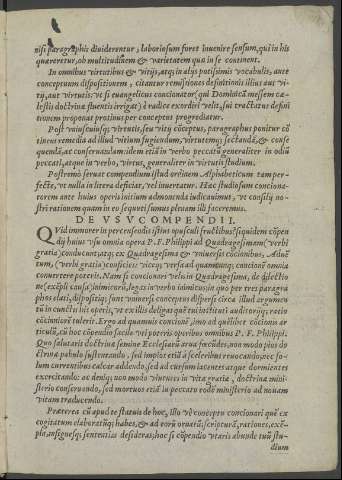 nisi paragraphis diuiderentur, laboriosum foret inuenire sensum, qui in his
quæreretur, ob multitudinem & varietatem quæ in se continent.
In omnibus virtutibus & vitijs, atq; in alijs potissimis vocabulis, ante
conceptuum dispositionem, citantur remissiones definitionis illius aut vi-
tij, aut virtutis: vt si euangelicus concionator, qui Dominicā messem cæ-
lestis doctrinæ fluentis irrigat) è radice exordiri velit, sui tractatus defini
tionem proponat protinus per conceptus progrediatur.
Post vniuscuiusq; virtutis, seu vitij cōceptus, paragraphus ponitur cō
tinens remedia ad illud vitium fugiendum, virtutemq; sectandā, & conse
quendā, ac conseruandam: idem etiā in verbo peccatū generaliter in odiū
peccati, atque in verbo, virtus, generaliter in virtutis studium.
Postremò seruat compendium istud ordinem Alphabeticum tam per-
fectè, vt nulla in litera deficiat, vel inuertatur. Hæc studiosum conciona-
torem ante huius operis initium admonenda iudicauimus, vt consilij no-
stri rationem quam in eo sequuti sumus planam illi faceremus.
DE VSV COMPENDII.
QVid immorer in percensendis istius opusculi fructibus? siquidem cōpen
dij huius vsu omnia opera P. F. Philippi ad Quadragesimam (verbi
gratia) conducunt, atq; ex Quadragesima & vniuersos cōcionibus, Aduē
tum, (verbi gratia) conficies: vicęq; versa ad quamcunq; concionē omnia
conuertere poteris. Nam si concionari velis in Quadragesima, de dilectio
ne (exēpli causa) inimicorū, legas in verbo inimicus, in quo per tres paragra
phos elati, dispositiq; sunt vniuersi conceptus dispersè circa illud argumen
tū in cunctis his operis, vt ex illis deligas quę tui instituti auditorijq; ratio
cōcinnari tulerit. Ergo ad quamuis concionē, imò ad quēlibet cōcionis ar-
ticulū, cū hoc cōpendio facilè vti poteris operibus omnibus P. F. Philippi.
Quo salutaris doctrinæ semine Ecclesiarū arua fœcūdes, non modo pios do
ctrinæ pabulo sustentando, sed impios etiā à sceleribus reuocando: nec so-
lum currentibus calcar addendo, sed ad cursum iacentes atque dormientes
excitando: ac deniq; non modo viuentes in vitæ gratia, doctrinæ mini-
sterio conseruando, sed mortuos etiā in peccato eodē ministerio ad nouam
vitam traducendo.
Præterea cū apud te statuis de hoc, illo vè conceptu concionari quē ex
cogitatum elaboratūq; habes, & ad rem ornandā; scripturā, rationes, exē-
pla, insignesq; sententias desideras; hoc si cōpendio vtaris abunde tuū stu-
dium